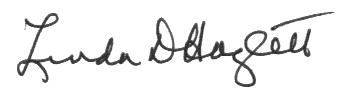 Linda D Haglett